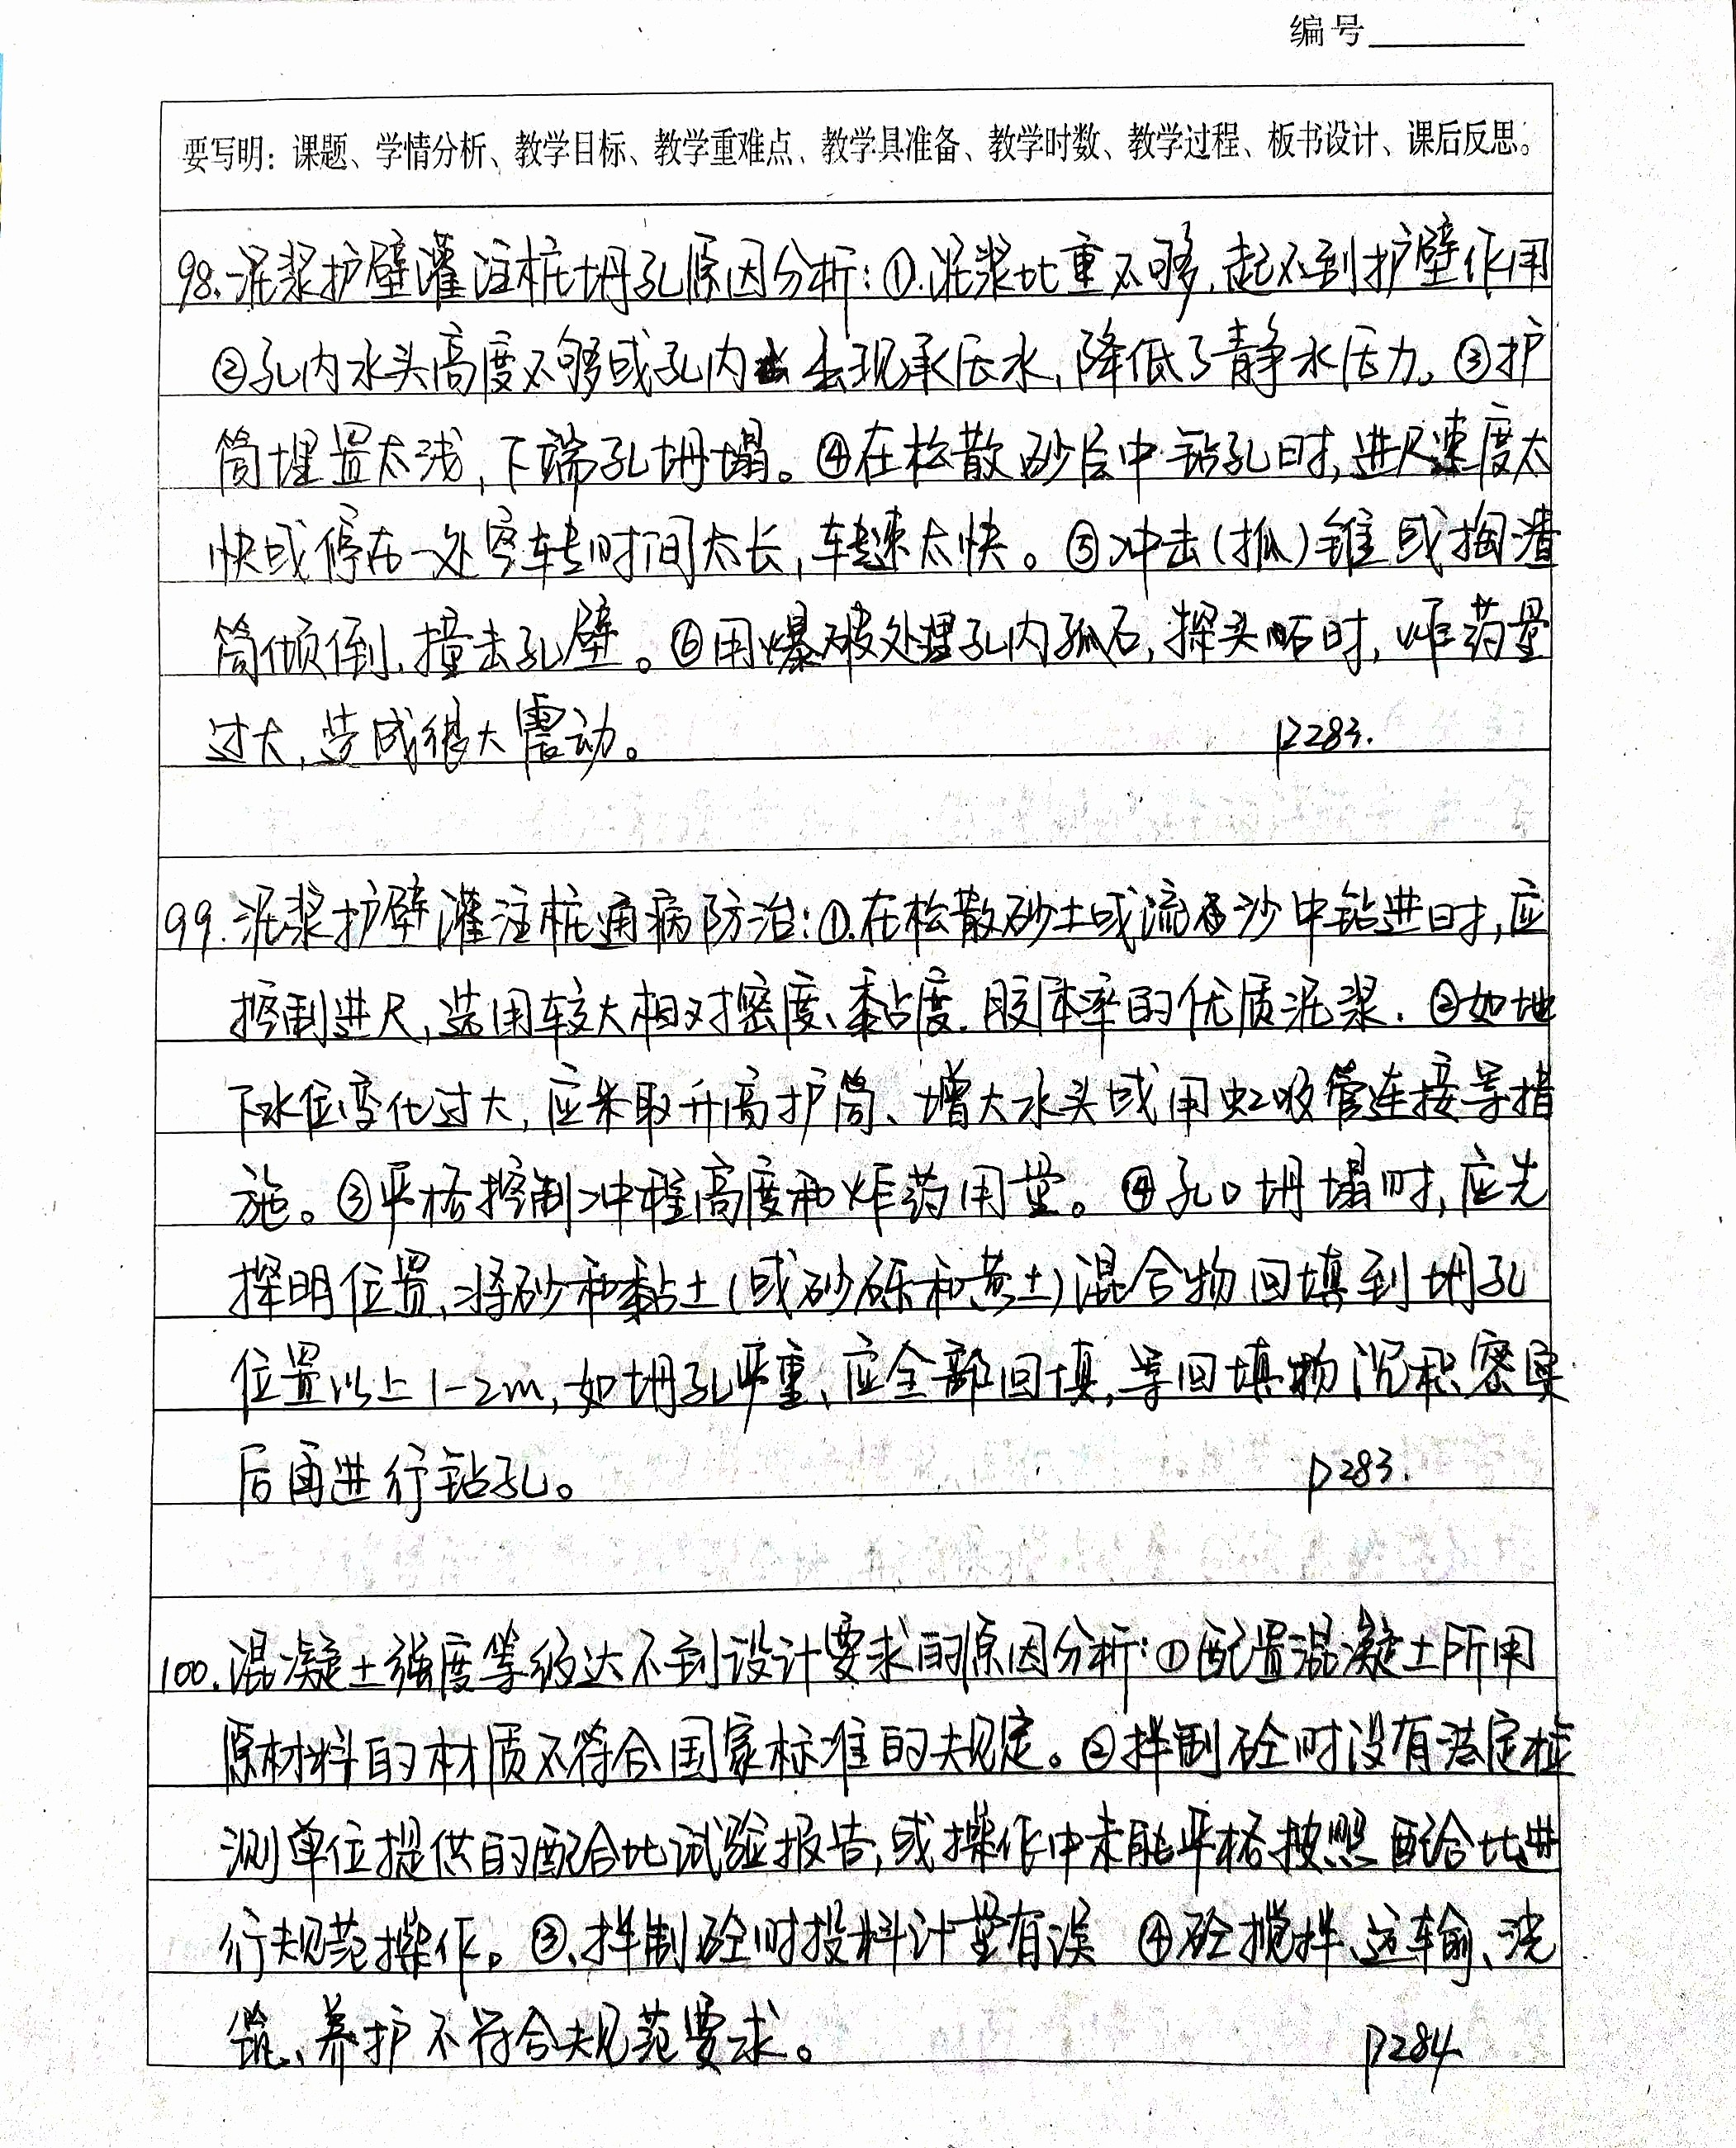 编号
要写明：课题、学情分析、教学目标、教学重难点、教学具准备、教学时数、教学过程、板书设计、课后反思。
98.泥浆护壁灌注桩坍孔原因分析:①.泥浆比重不够,起不到护壁作用
②孔内水头高度不够或孔内出现承压水,降低了静水压力。③护
筒埋置太浅,下端孔坍塌。④在松散砂层中钻孔时,进尺速度太
快或停在一处空转时间太长,转速太快。⑤冲击(抓)锥或掏渣
筒倾倒、撞击孔壁。⑥用爆破处理孔内孤石,探头石时,炸药量
过大,造成很大震动。 P283.
99.泥浆护壁灌注桩通病防治:①.在松散砂土或流沙中钻进时,应
控制进尺,选用较大相对密度、黏度、胶体率的优质泥浆.②如地
下水位变化过大,应采取升高护筒、增大水头或用虹吸管连接等措
施。③严格控制冲程高度和炸药用量。④孔口坍塌时,应先
探明位置,将砂和黏土(或砂砾和黄土)混合物回填到坍孔
位置以上1-2m,如坍孔严重、应全部回填,等回填物沉积密实
后再进行钻孔。 P283.
100.混凝土强度等级达不到设计要求的原因分析:①配置混凝土所用
原材料的材质不符合国家标准的规定。②拌制砼时没有法定检
测单位提供的配合比试验报告,或操作中未能严格按照配合比进
行规范操作。③、拌制砼时投料计量有误 ④砼搅拌、运输、浇
筑、养护不符合规范要求。 P284